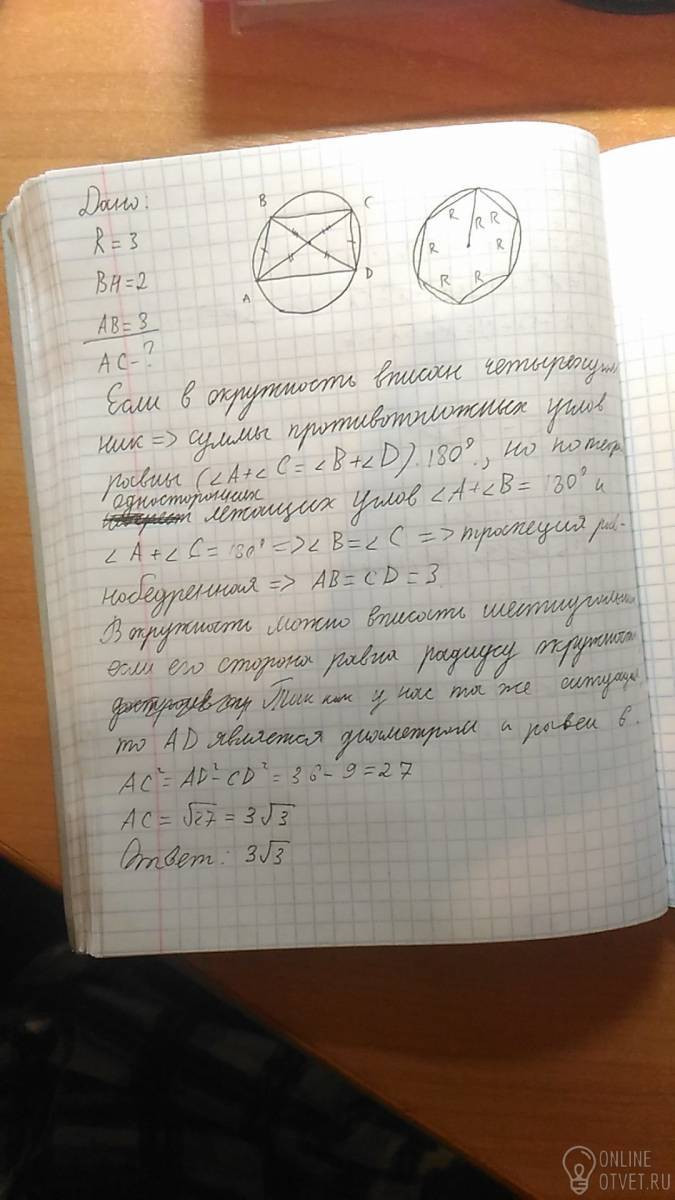 Дано:
R = 3
BH = 2
AB = 3
AC - ?
B C
A D
R R R
R R
R R
Если в окружность вписан четырехуголь
ник => суммы противоположных углов
равны (∠A+∠C = ∠B+∠D) 180°, но по
односторонних
лежащих углов ∠A+∠B = 180° и
∠A+∠C = 180° => ∠B=∠C => трапеция рав-
нобедренная => AB = CD = 3
В окружность можно вписать
если его сторона равна радиусу окружности
Так как у нас та же ситуация
то AD является диаметром и равен 6.
AC² = AD² - CD² = 36 - 9 = 27
AC = √27 = 3√3
Ответ: 3√3
ONLINE
OTVET.RU